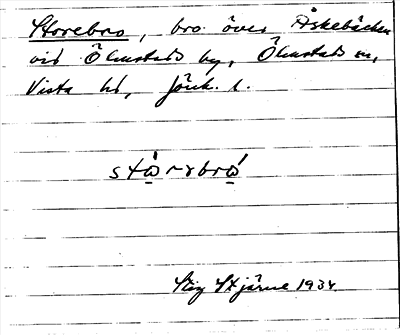 Storebro, bro över Åskebäcken
vid Ölmstads by, Ölmstads sn,
Vista hd, Jönk. l.
stò̱rəbró̱
Stig Stjärne 1934